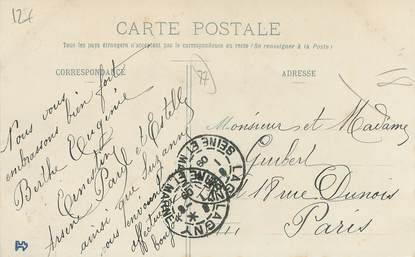 12€
CARTE POSTALE
Tous les pays étrangers n'acceptent pas la correspondance au recto (Se renseigner à la Poste)
CORRESPONDANCE
77
ADRESSE
Nous vous
embrassons bien fort
Berthe Eugénie
Ernestine
Arsène Paul et Estelle
ainsi que Suzanne
Monsieur et Madame
Guibert
18 rue Dunois
Paris
LAGNY
SEINE ET MARNE
LAGNY
SEINE ET MARNE